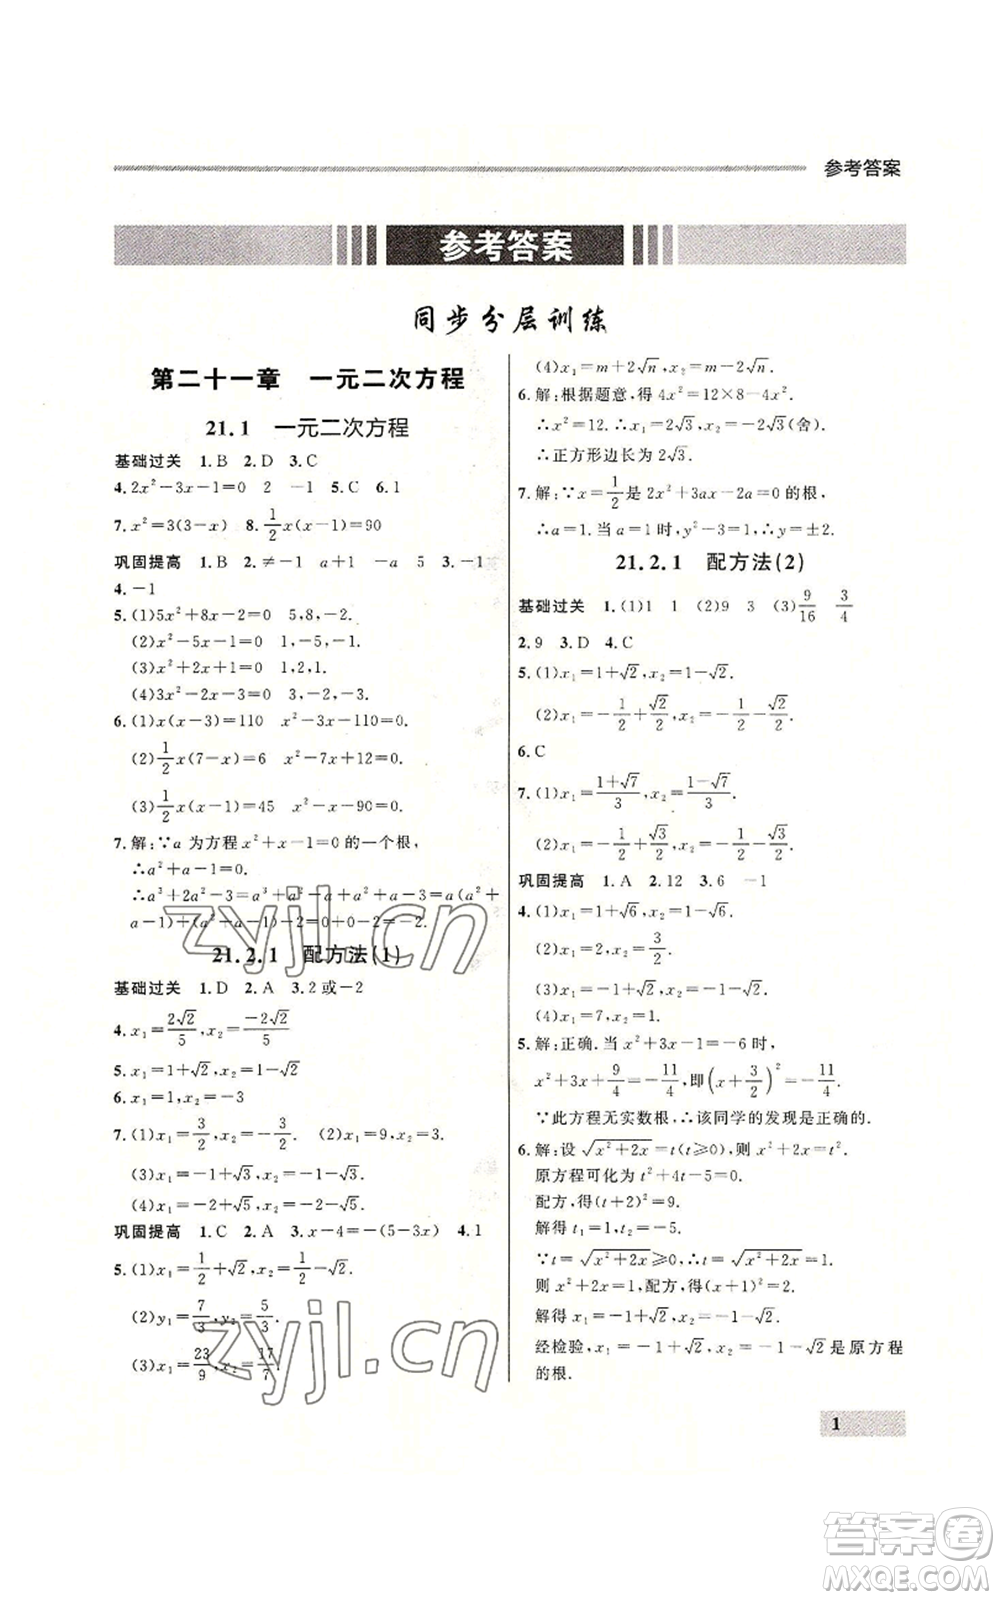 参考答案
参考答案
同步分层训练
第二十一章 一元二次方程
21.1 一元二次方程
基础过关 1.B 2.D 3.C
4.2x²-3x-1=0 2 -1 5.C 6.1
7.x²=3(3-x) 8.1/2x(x-1)=90
巩固提高 1.B 2.≠-1 a+1 -a 5 3.-1
4.-1
5.(1)5x²+8x-2=0 5,8,-2.
(2)x²-5x-1=0 1,-5,-1.
(3)x²-4x+3=0 1,-4,3.
(4)3x²-x-3=0 3,-1,-3.
6.(1)x(x-3)=110 x²-3x-110=0.
(2)1/2x(7-x)=6 x²-7x+12=0.
(3)1/2x(x-1)=45 x²-x-90=0.
7.解:∵a 为方程 x²+x-1=0 的一个根,
∴a²+a-1=0.
∴a³+2a²-3=a³+a²-a+a²+a-3=a(a²+
a-1)+(a²+a-1)-2=0+0-2=-2.
21.2.1 配方法(1)
基础过关 1.D 2.A 3.2 或-2
4.x₁=2√2/5,x₂=-2√2/5
5.x₁=1+√2,x₂=1-√2
6.x₁=1,x₂=-3
7.(1)x₁=3/2,x₂=-3/2. (2)x₁=9,x₂=3.
(3)x₁=-1+√3,x₂=-1-√3.
(4)x₁=-2+√5,x₂=-2-√5.
巩固提高 1.C 2.A 3.x-4=-(5-3x) 4.1
5.(1)x₁=1/2+√2,x₂=1/2-√2.
(2)y₁=7/3,y₂=5/3.
(3)x₁=23/9,x₂=17/7.
(4)x₁=m+2√n,x₂=m-2√n.
6.解:根据题意,得 4x²=12×8-4x².
∴x²=12.∴x₁=2√3,x₂=-2√3(舍).
∴正方形边长为 2√3.
7.解:∵x=1/2是 2x²+3ax-2a=0 的根,
∴a=1.当 a=1 时,y²-3=1,∴y=±2.
21.2.1 配方法(2)
基础过关 1.(1)1 1 (2)9 3 (3)9/16 3/4
2.9 3.D 4.C
5.(1)x₁=1+√2,x₂=1-√2.
(2)x₁=-1/2+√2/2,x₂=-1/2-√2/2.
6.C
7.(1)x₁=1+√7/3,x₂=1-√7/3.
(2)x₁=1/2+√3/2,x₂=1/2-√3/2.
巩固提高 1.A 2.12 3.6 -1
4.(1)x₁=1+√6,x₂=1-√6.
(2)x₁=2,x₂=3/2.
(3)x₁=-1+√2,x₂=-1-√2.
(4)x₁=7,x₂=1.
5.解:正确.当 x²+3x-1=-6 时,
x²+3x+9/4=-11/4,即(x+3/2)²=-11/4.
∵此方程无实数根,∴该同学的发现是正确的.
6.解:设 √x²+2x=t(t≥0),则 x²+2x=t².
原方程可化为 t²+4t-5=0.
配方,得(t+2)²=9.
解得 t₁=1,t₂=-5.
∵t=√x²+2x≥0,∴t=√x²+2x=1.
则 x²+2x=1,配方,得(x+1)²=2.
解得 x₁=-1+√2,x₂=-1-√2.
经检验,x₁=-1+√2,x₂=-1-√2 是原方程
的根.
1
zyjl.cn
zyjl.cn
答案圈
MXQE.COM